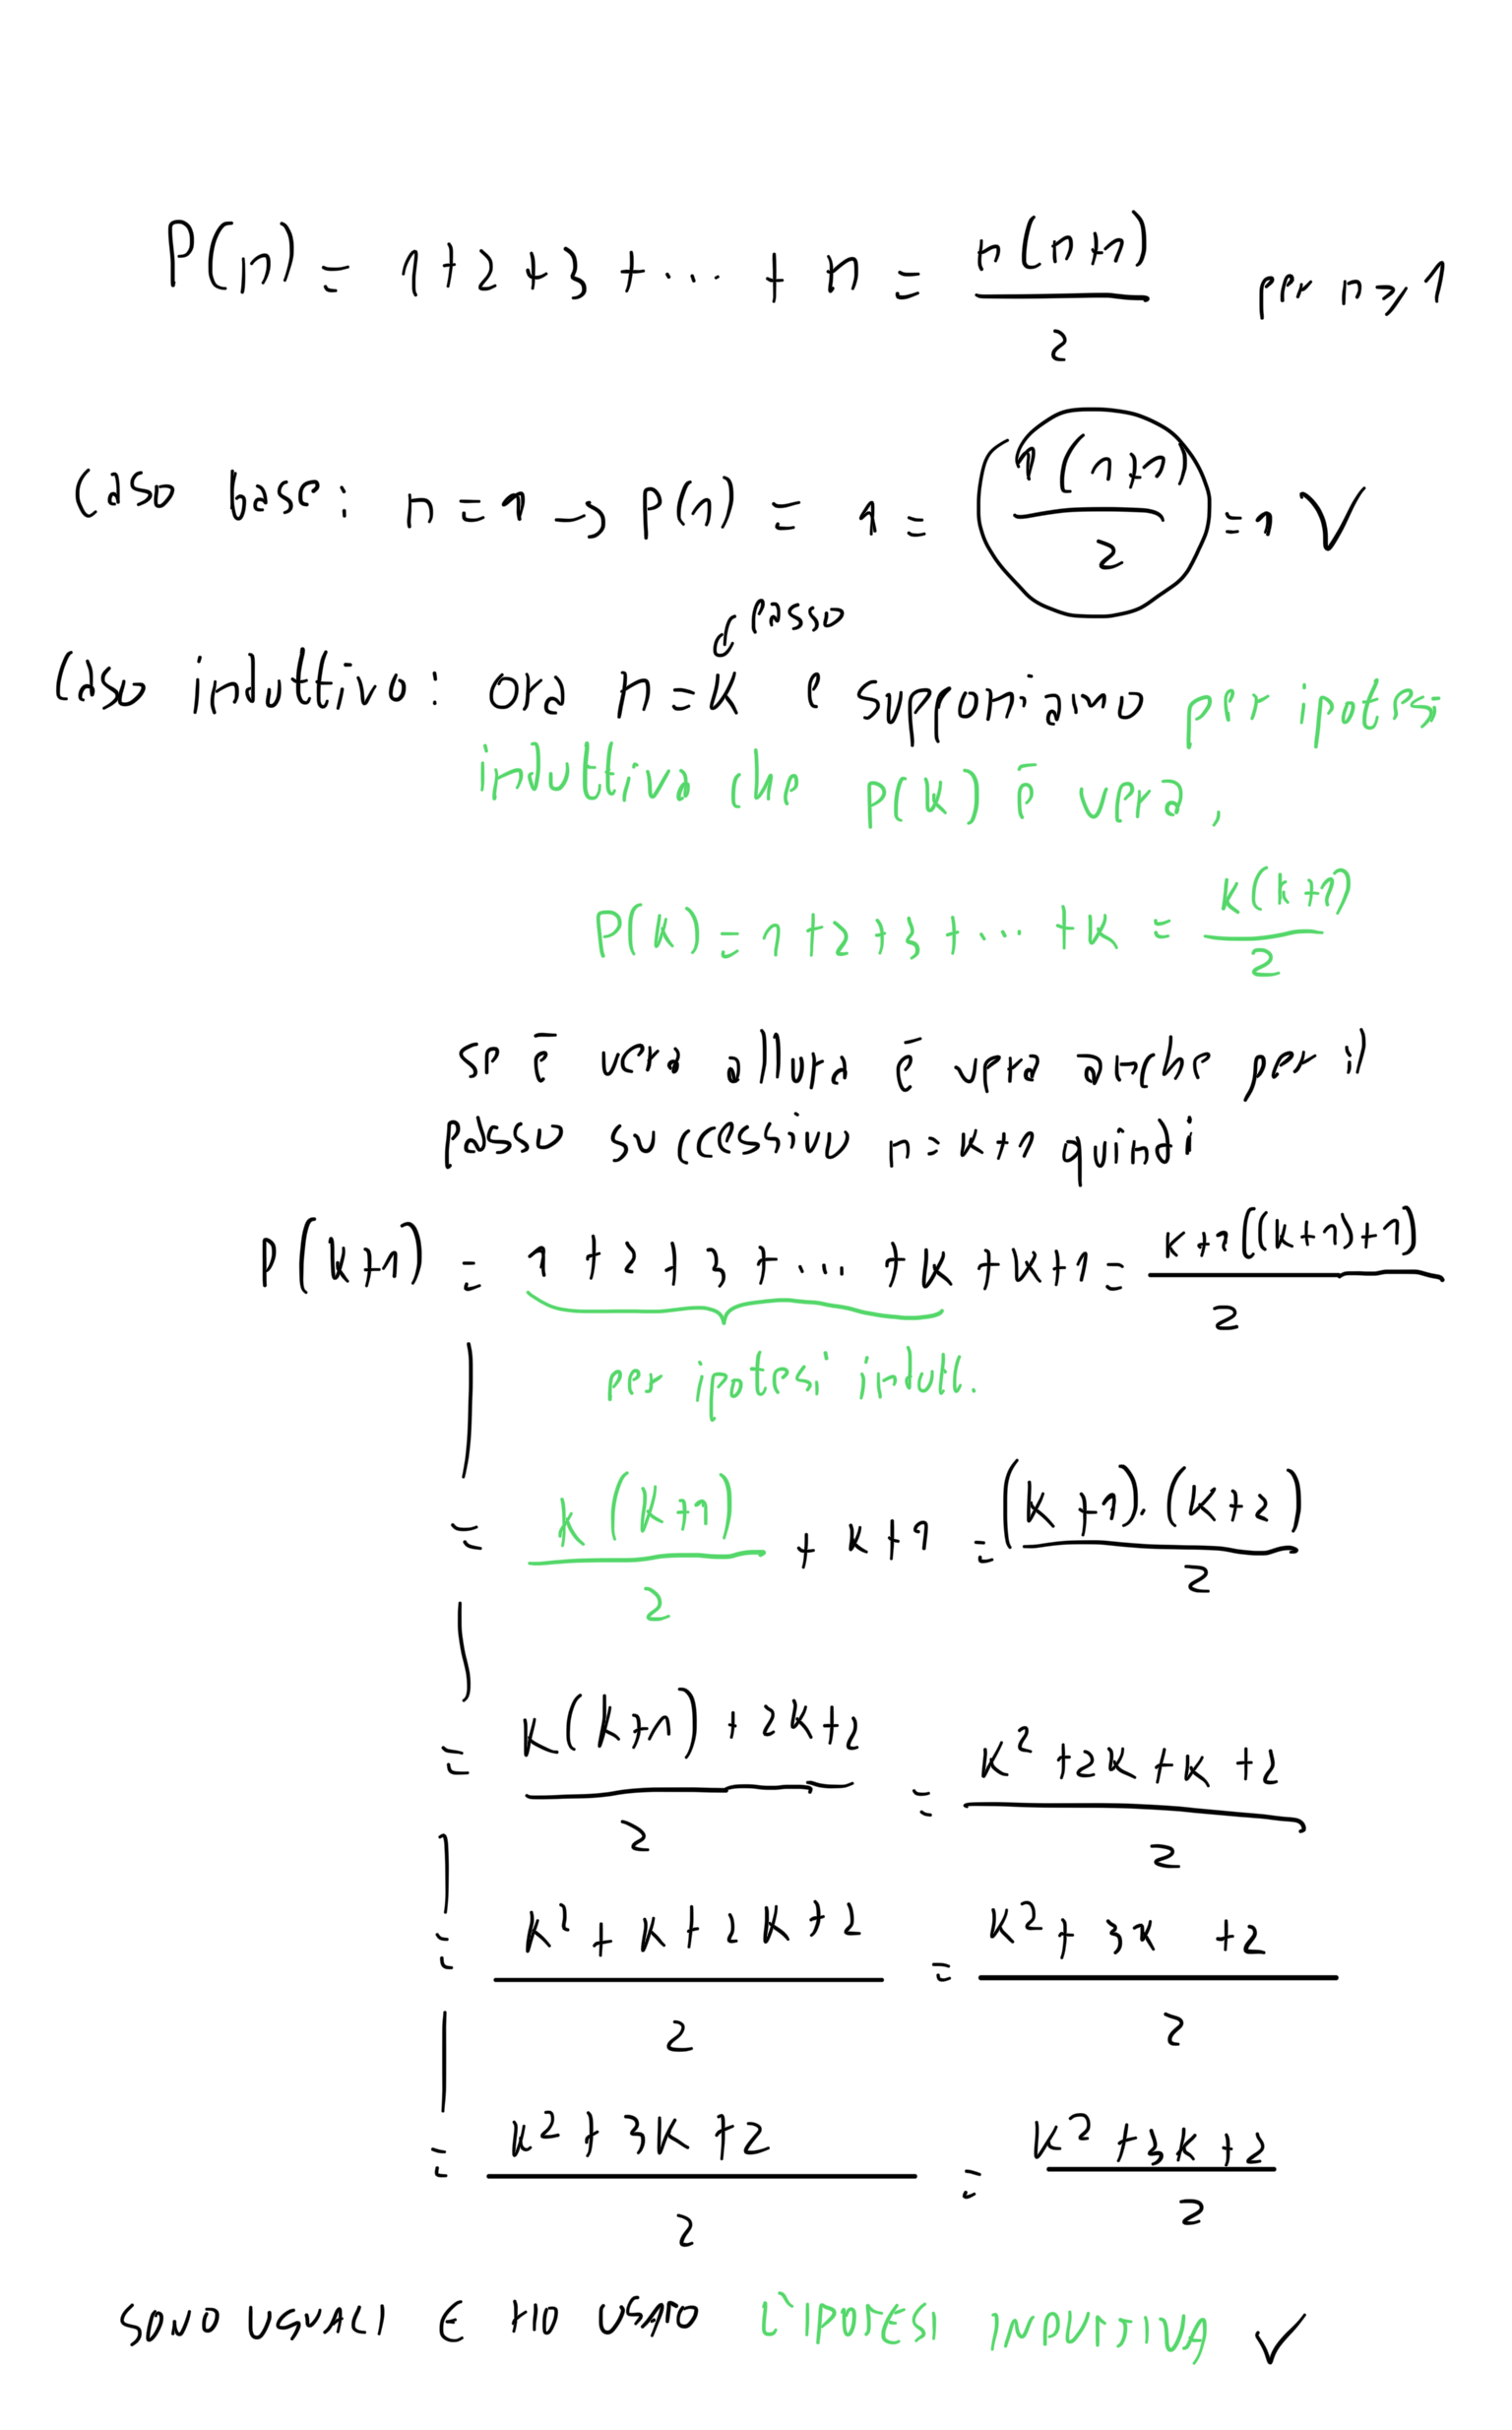 P(n) = 1+2+3+... + n = n(n+1)/2 per n ≥ 1
Caso base: n=1 -> P(1) = 1 = 1(1+1)/2 = 1 ✓
passo
Caso induttivo: ora n=k e supponiamo per ipotesi
induttiva che P(k) è vera,
P(k) = 1+2+3+...+k = k(k+1)/2
se è vera allora è vera anche per il
passo successivo n=k+1 quindi
P(k+1) = 1+2+3+...+k+k+1 = k+1((k+1)+1)/2
per ipotesi indutt.
= k(k+1)/2 + k+1 = (k+1)·(k+2)/2
= k(k+1)+2k+2/2 = k²+2k+k+2/2
= k²+k+2k+2/2 = k²+3k+2/2
= k²+3k+2/2 = k²+3k+2/2
SONO UGUALI E HO USATO L'IPOTESI INDUTTIVA ✓